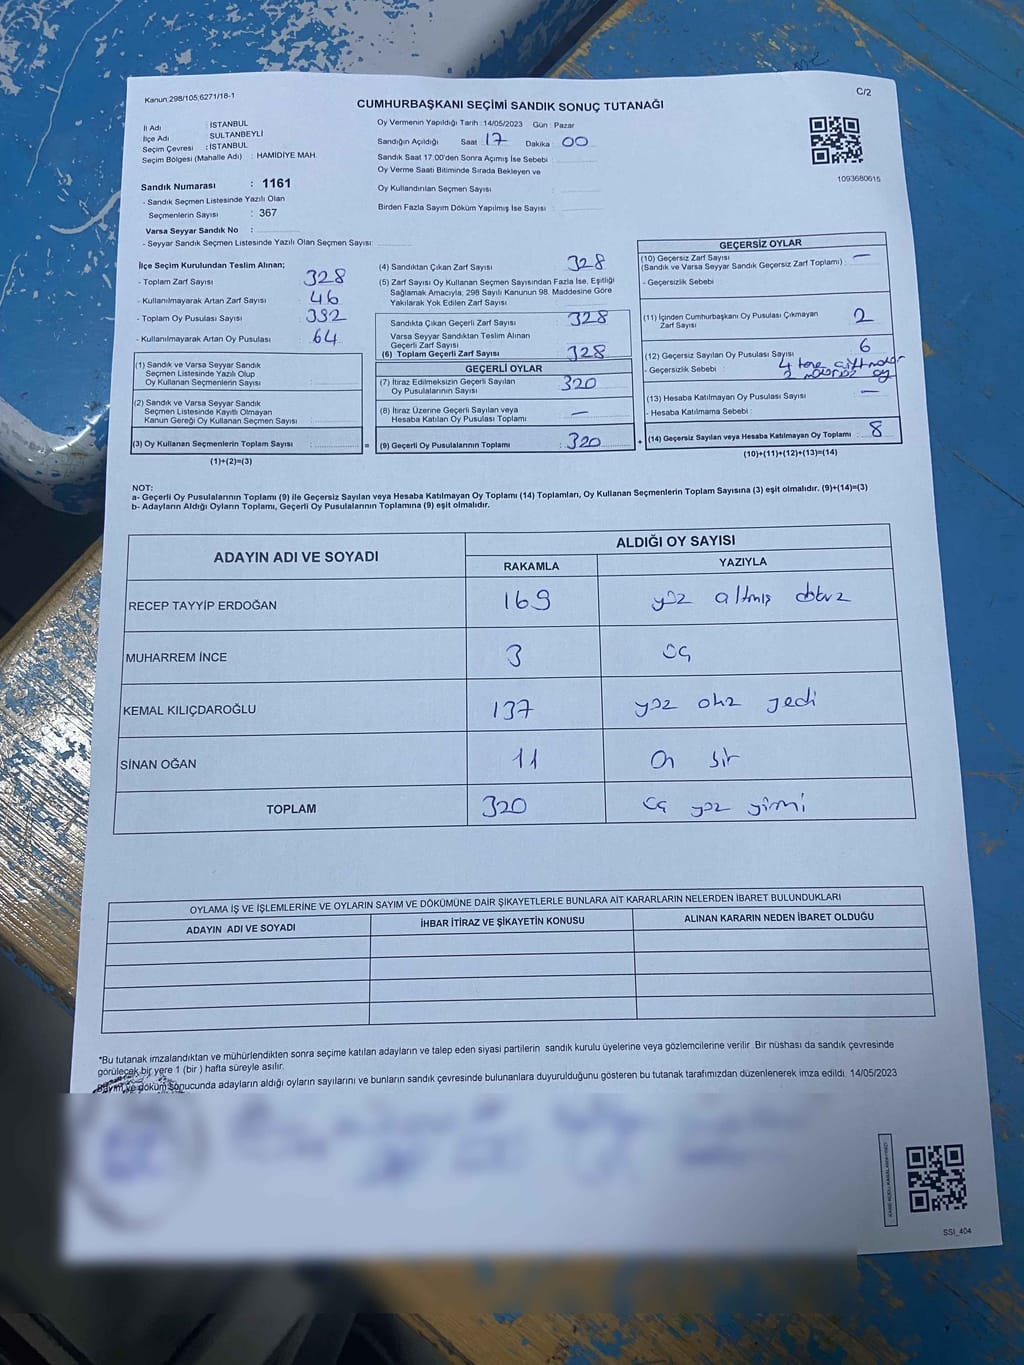 Kanun:298/105;6271/18-1
C/2
CUMHURBAŞKANI SEÇİMİ SANDIK SONUÇ TUTANAĞI
İl Adı : İSTANBUL
İlçe Adı : SULTANBEYLİ
Seçim Çevresi : İSTANBUL
Seçim Bölgesi (Mahalle Adı) : HAMIDIYE MAH.
Oy Vermenin Yapıldığı Tarih :14/05/2023 Gün : Pazar
Sandığın Açıldığı Saat : 17 Dakika : 00
Sandık Saat 17:00'den Sonra Açımış İse Sebebi :
Oy Verme Saati Bitiminde Sırada Bekleyen ve
Oy Kullandırılan Seçmen Sayısı :
Birden Fazla Sayım Döküm Yapılmış İse Sayısı :
1093680615
Sandık Numarası : 1161
- Sandık Seçmen Listesinde Yazılı Olan
Seçmenlerin Sayısı : 367
Varsa Seyyar Sandık No :
- Seyyar Sandık Seçmen Listesinde Yazılı Olan Seçmen Sayısı:
İlçe Seçim Kurulundan Teslim Alınan;
- Toplam Zarf Sayısı : 328
- Kullanılmayarak Artan Zarf Sayısı : 46
- Toplam Oy Pusulası Sayısı : 392
- Kullanılmayarak Artan Oy Pusulası : 64
(1) Sandık ve Varsa Seyyar Sandık
Seçmen Listesinde Yazılı Olup
Oy Kullanan Seçmenlerin Sayısı :
(2) Sandık ve Varsa Seyyar Sandık
Seçmen Listesinde Kayıtlı Olmayan
Kanun Gereği Oy Kullanan Seçmen Sayısı :
(3) Oy Kullanan Seçmenlerin Toplam Sayısı :
(1)+(2)=(3)
(4) Sandıktan Çıkan Zarf Sayısı : 328
(5) Zarf Sayısı Oy Kullanan Seçmen Sayısından Fazla İse, Eşitliği
Sağlamak Amacıyla, 298 Sayılı Kanunun 98. Maddesine Göre
Yakılarak Yok Edilen Zarf Sayısı :
Sandıkta Çıkan Geçerli Zarf Sayısı : 328
Varsa Seyyar Sandıktan Teslim Alınan
Geçerli Zarf Sayısı :
(6) Toplam Geçerli Zarf Sayısı : 328
GEÇERLİ OYLAR
(7) İtiraz Edilmeksizin Geçerli Sayılan
Oy Pusulalarının Sayısı : 320
(8) İtiraz Üzerine Geçerli Sayılan veya
Hesaba Katılan Oy Pusulası Toplamı : —
= (9) Geçerli Oy Pusulalarının Toplamı : 320
GEÇERSİZ OYLAR
(10) Geçersiz Zarf Sayısı
(Sandık ve Varsa Seyyar Sandık Geçersiz Zarf Toplamı) : —
- Geçersizlik Sebebi :
(11) İçinden Cumhurbaşkanı Oy Pusulası Çıkmayan
Zarf Sayısı : 2
(12) Geçersiz Sayılan Oy Pusulası Sayısı : 6
- Geçersizlik Sebebi : 4 tane
2 oy
(13) Hesaba Katılmayan Oy Pusulası Sayısı : —
- Hesaba Katılmama Sebebi :
+ (14) Geçersiz Sayılan veya Hesaba Katılmayan Oy Toplamı : 8
(10)+(11)+(12)+(13)=(14)
NOT:
a- Geçerli Oy Pusulalarının Toplamı (9) ile Geçersiz Sayılan veya Hesaba Katılmayan Oy Toplamı (14) Toplamları, Oy Kullanan Seçmenlerin Toplam Sayısına (3) eşit olmalıdır. (9)+(14)=(3)
b- Adayların Aldığı Oyların Toplamı, Geçerli Oy Pusulalarının Toplamına (9) eşit olmalıdır.
ADAYIN ADI VE SOYADI ALDIĞI OY SAYISI
RAKAMLA YAZIYLA
RECEP TAYYİP ERDOĞAN 169 yüz altmış dokuz
MUHARREM İNCE 3 üç
KEMAL KILIÇDAROĞLU 137 yüz otuz yedi
SİNAN OĞAN 11 On bir
TOPLAM 320 üç yüz yirmi
OYLAMA İŞ VE İŞLEMLERİNE VE OYLARIN SAYIM VE DÖKÜMÜNE DAİR ŞİKAYETLERLE BUNLARA AİT KARARLARIN NELERDEN İBARET BULUNDUKLARI
ADAYIN ADI VE SOYADI İHBAR İTİRAZ VE ŞİKAYETİN KONUSU ALINAN KARARIN NEDEN İBARET OLDUĞU
*Bu tutanak imzalandıktan ve mühürlendikten sonra seçime katılan adayların ve talep eden siyasi partilerin sandık kurulu üyelerine veya gözlemcilerine verilir. Bir nüshası da sandık çevresinde
görülecek bir yere 1 (bir ) hafta süreyle asılır.
Sayım ve döküm sonucunda adayların aldığı oyların sayılarını ve bunların sandık çevresinde bulunanlara duyurulduğunu gösteren bu tutanak tarafımızdan düzenlenerek imza edildi. 14/05/2023
SSI_404